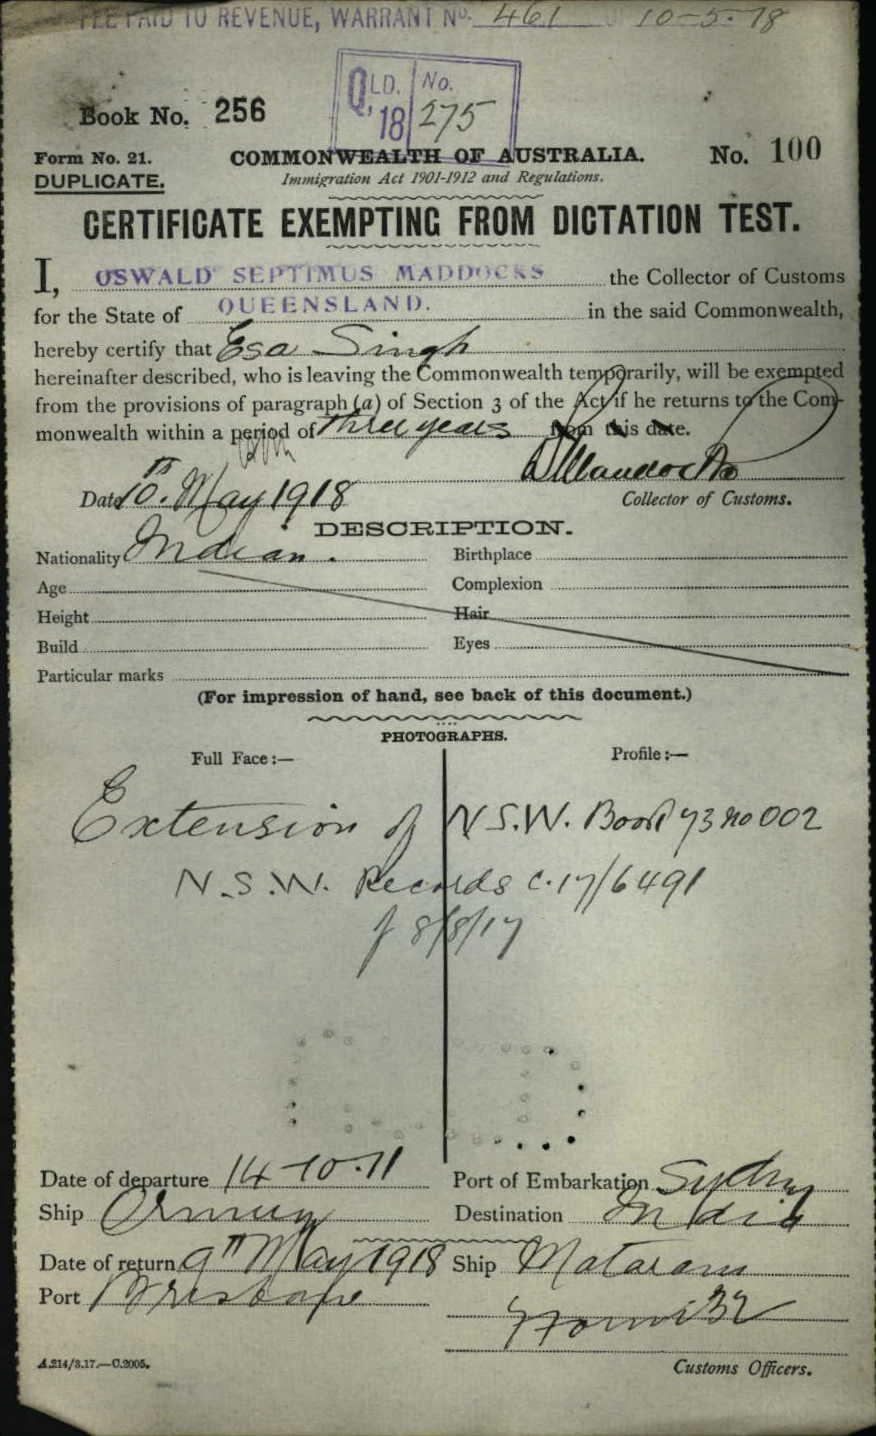 FEE PAID TO REVENUE, WARRANT No. 461 OF 10-5-18
QLD. No.
'18 275
Book No. 256
Form No. 21.
COMMONWEALTH OF AUSTRALIA.
No. 100
DUPLICATE.
Immigration Act 1901-1912 and Regulations.
CERTIFICATE EXEMPTING FROM DICTATION TEST.
I, OSWALD SEPTIMUS MADDOCKS the Collector of Customs
for the State of QUEENSLAND. in the said Commonwealth,
hereby certify that Esa Singh
hereinafter described, who is leaving the Commonwealth temporarily, will be exempted
from the provisions of paragraph (a) of Section 3 of the Act if he returns to the Com-
monwealth within a period of three years from this date.
Date 10th. May 1918
Collector of Customs.
DESCRIPTION.
Nationality Indian. Birthplace
Age Complexion
Height Hair
Build Eyes
Particular marks
(For impression of hand, see back of this document.)
PHOTOGRAPHS.
Full Face:— Profile:—
Extension of N.S.W. Book 73 no 002
N.S.W. Records C.17/6491
of 8/8/17
Date of departure 14-10-11 Port of Embarkation Sydney
Ship Destination India
Date of return 9th May 1918 Ship Mataram
Port Brisbane
A.214/3.17.—C.2005.
Customs Officers.